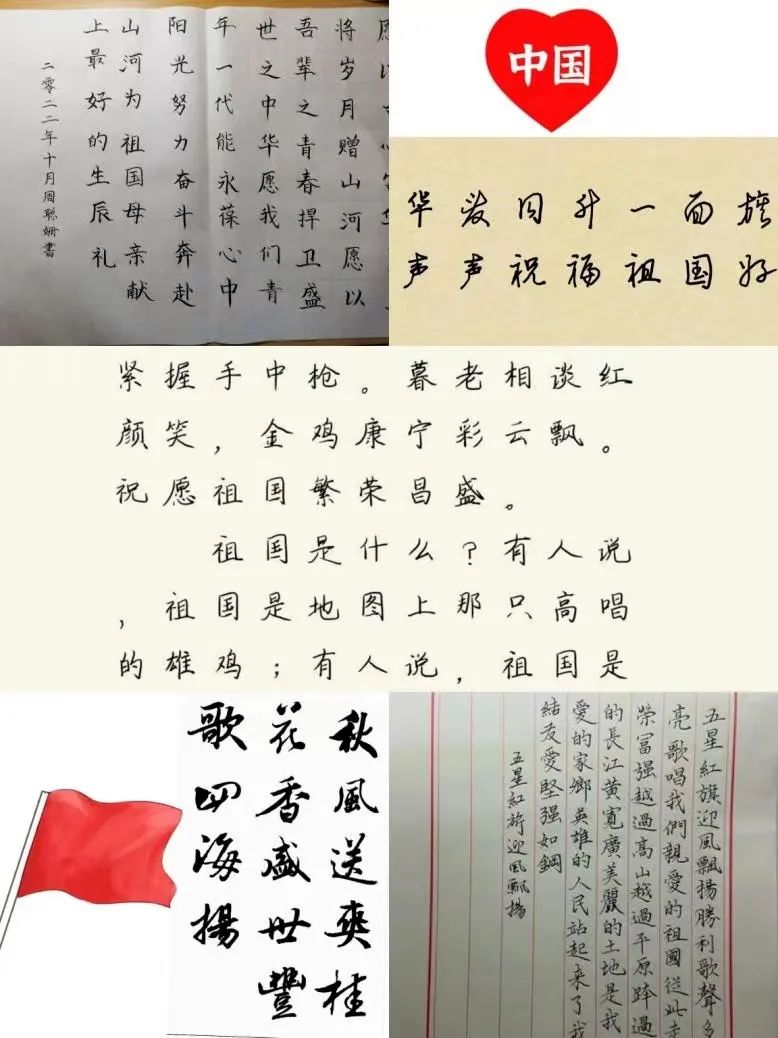 将岁月赠山河愿以
吾辈之青春捍卫盛
世之中华愿我们青
年一代能永葆心中
阳光努力奋斗奔赴
山河为祖国母亲献
上最好的生辰礼
二零二二年十月周聪姗書
中国
华发日升一面旗
声声祝福祖国好
紧握手中枪。暮老相谈红
颜笑，金鸡康宁彩云飘。
祝愿祖国繁荣昌盛。
祖国是什么？有人说
，祖国是地图上那只高唱
的雄鸡；有人说，祖国是
秋風送爽桂
花香盛世豐
歌四海揚
五星紅旗迎風飄揚勝利歌聲多
亮歌唱我們親愛的祖國從此走
榮富强越過高山越過平原跨過
的長江黄寬廣美麗的土地是我
愛的家鄉英雄的人民站起来了我
結友愛堅强如鋼
五星紅旗迎風飄揚